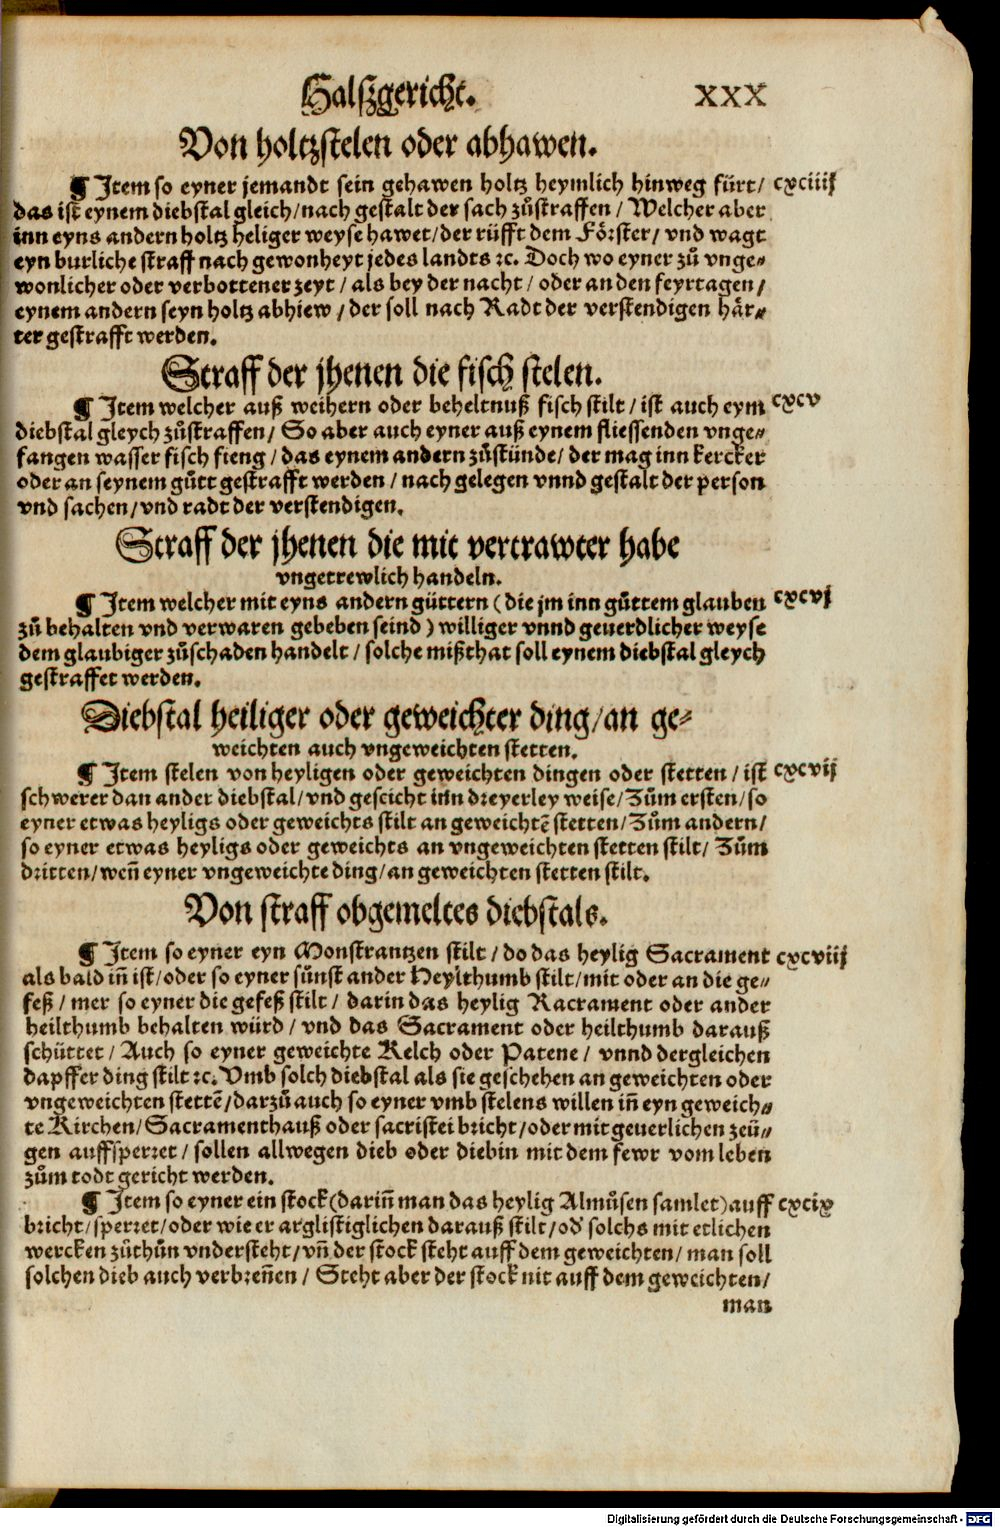 Halßgericht. XXX
Von holtzstelen oder abhawen.
¶ Item so eyner jemandt sein gehawen holtz heymlich hinweg fürt/ cxciiij
das ist eynem diebstal gleich/nach gestalt der sach zůstraffen/ Welcher aber
inn eyns andern holtz heliger weyse hawet/der rüfft dem Förster/ vnd wagt
eyn burliche straff nach gewonheyt jedes landts ꝛc. Doch wo eyner zů vnge⸗
wonlicher oder verbottener zeyt/ als bey der nacht/ oder an den feyrtagen/
eynem andern seyn holtz abhiew/ der soll nach Radt der verstendigen här⸗
ter gestrafft werden.
Straff der jhenen die fisch stelen.
¶ Item welcher auß weihern oder beheltnuß fisch stilt/ ist auch eym cxcv
diebstal gleych zůstraffen/ So aber auch eyner auß eynem fliessenden vnge⸗
fangen wasser fisch fieng/ das eynem andern zůstünde/ der mag inn kercker
oder an seynem gůtt gestrafft werden/ nach gelegen vnnd gestalt der person
vnd sachen/vnd radt der verstendigen.
Straff der jhenen die mit vertrawter habe
vngetrewlich handeln.
¶ Item welcher mit eyns andern güttern (die jm inn gůttem glauben cxcvj
zů behalten vnd verwaren gebeben seind) williger vnnd geuerdlicher weyse
dem glaubiger zůschaden handelt/ solche mißthat soll eynem diebstal gleych
gestraffet werden.
Diebstal heiliger oder geweichter ding/an ge⸗
weichten auch vngeweichten stetten.
¶ Item stelen von heyligen oder geweichten dingen oder stetten/ ist cxcvij
schwerer dan ander diebstal/vnd gescicht inn dreyerley weise/Zům ersten/so
eyner etwas heyligs oder geweichts stilt an geweichtẽ stetten/Zům andern/
so eyner etwas heyligs oder geweichts an vngeweichten stetten stilt/ Zům
dritten/weñ eyner vngeweichte ding/an geweichten stetten stilt.
Von straff obgemeltes diebstals.
¶ Item so eyner eyn Monstrantzen stilt/do das heylig Sacrament cxcviij
als bald iñ ist/oder so eyner sůnst ander Heylthumb stilt/mit oder an die ge⸗
feß/ mer so eyner die gefeß stilt/ darin das heylig Racrament oder ander
heilthumb behalten würd/ vnd das Sacrament oder heilthumb darauß
schüttet/ Auch so eyner geweichte Kelch oder Patene/ vnnd dergleichen
dapffer ding stilt ꝛc. Vmb solch diebstal als sie geschehen an geweichten oder
vngeweichten stettẽ/darzů auch so eyner vmb stelens willen iñ eyn geweich⸗
te Kirchen/Sacramenthauß oder sacristei bricht/oder mit geuerlichen zeü⸗
gen auffsperret/ sollen allwegen dieb oder diebin mit dem fewr vom leben
zům todt gericht werden.
¶ Item so eyner ein stock (dariñ man das heylig Almůsen samlet) auff cxcix
bricht/sperret/oder wie er arglistiglichen darauß stilt/od' solchs mit etlichen
wercken zůthůn vndersteht/vñ der stock steht auff dem geweichten/man soll
solchen dieb auch verbreñen/ Steht aber der stock nit auff dem geweichten/
man
Digitalisierung gefördert durch die Deutsche Forschungsgemeinschaft - DFG